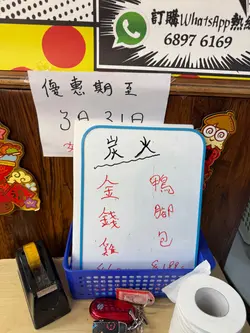 訂購WhatsApp熱
6897 6169
優惠期至
3月31日
炭火
金錢雞
鴨腳包